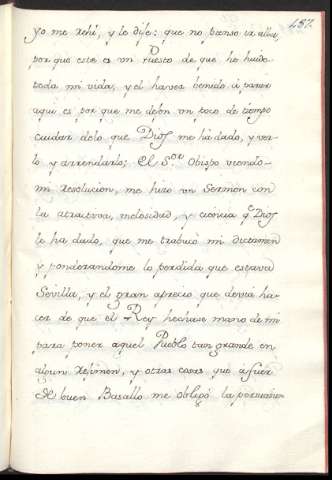 157.
yo me rehi, y lo dije: que no pienso ir alla,
por que este es un Puesto de que he huido
toda mi vida, y el haver benido á parar
aqui es por que me deben un poco de tiempo
cuidar delo que Dios me há dado, y ver-
lo y arrendarlo; El S.or Obispo viendo-
mi resolucion, me hizo un Sermón con
la atractiva, melosidad, y ciencia q.e Dios
le ha dado, que me trabucó mi dictamen
y ponderandome lo perdida que estava
Sevilla, y el gran aprecio que devia ha-
cer de que el Rey hechase mano de mi
para poner aquel Pueblo tan grande en
algun reximen, y otras cosas que afuer
de buen Basallo me obligó la